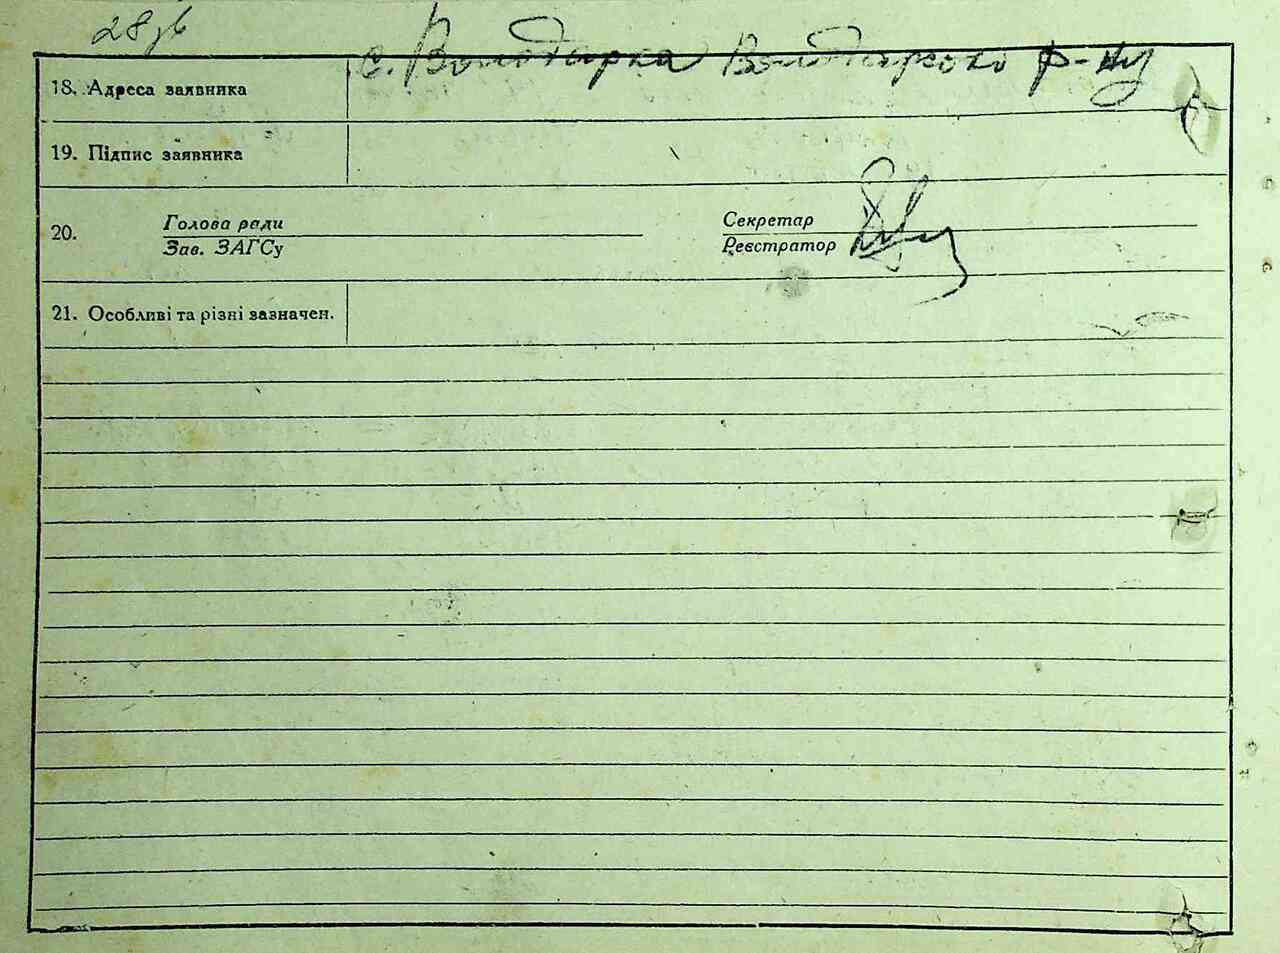 28 зв
с. Володарка Володарсько р-ну
18. Адреса заявника
19. Підпис заявника
20. Голова ради Секретар
Зав. ЗАГСу Реєстратор
21. Особливі та різні зазначен.